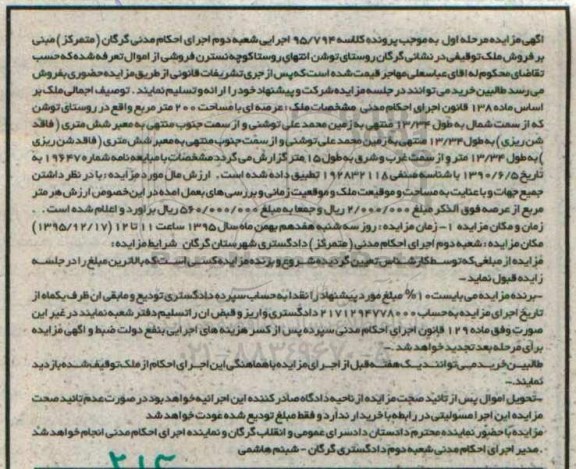 اگهی مزایده مرحله اول به موجب پرونده کلاسه ۹۵/۷۹۴ اجرایی شعبه دوم اجرای احکام مدنی گرگان (متمرکز) مبنی
بر فروش ملک توقیفی در نشانی گرگان روستای توشن انتهای روستا کوچه نسترن فروشی از اموال تعرفه شده که حسب
تقاضای محکوم له اقای عباسعلی مهاجر قیمت شده است که پس از جری تشریفات قانونی از طریق مزایده حضوری بفروش
می رسد طالبین خرید می توانند در جلسه مزایده شرکت و پیشنهاد خود را ارائه و تسلیم نمایند . توصیف اجمالی ملک بر
اساس ماده ۱۳۸ قانون اجرای احکام مدنی مشخصات ملک : عرصه ای با مساحت ۲۰۰ متر مربع واقع در روستای توشن
که از سمت شمال به طول ۱۳/۳۴ منتهی به زمین محمد علی توشنی و از سمت جنوب منتهی به معبر شش متری ( فاقد
شن ریزی ) به طول ۱۳/۳۴ منتهی به زمین محمد علی توشنی و از سمت جنوب منتهی به معبر شش متری ( فاقد شن ریزی
) به طول ۱۳/۳۴ متر و از سمت غرب و شرق به طول ۱۵ متر گزارش می گردد مشخصات با مبایعه نامه شماره ۱۹۶۴۷ به
تاریخ ۱۳۹۰/۶/۵ با شناسه صنفی ۱۹۶۸۳۲۱۱۸ تطبیق داده شده است . ارزش مال مورد مزایده : با در نظر داشتن
جمیع جهات و با عنایت به مساحت و موقعیت ملک و موقعیت زمانی و بررسی های بعمل امده در این خصوص ارزش هر متر
مربع از عرصه فوق الذکر مبلغ ۲/۰۰۰/۰۰۰ ریال و جمعا به مبلغ ۵۶۰/۰۰۰/۰۰۰ ریال براورد و اعلام شده است . .
زمان و مکان مزایده ۱- زمان مزایده : روز سه شنبه هفدهم بهمن ماه سال ۱۳۹۵ ساعت ۱۱ تا ۱۲ (۱۳۹۵/۱۲/۱۷)
مکان مزایده : شعبه دوم اجرای احکام مدنی (متمرکز) دادگستری شهرستان گرگان شرایط مزایده :
مزایده از مبلغی که توسط کارشناس تعیین گردیده شروع و برنده مزایده کسی است که بالاترین مبلغ را در جلسه م
زایده قبول نماید -
-برنده مزایده می بایست ۱۰% مبلغ مورد پیشنهاد را نقدا به حساب سپرده دادگستری تودیع و مابقی ان ظرف یکماه از
تاریخ اجرای مزایده به حساب ۲۱۷۱۲۹۴۷۷۸۰۰۰ دادگستری واریز و قبض ان را تسلیم دفتر شعبه نمایند در غیر این
صورت وفق ماده ۱۲۹ قانون اجرای احکام مدنی سپرده پس از کسر هزینه های اجرایی بنفع دولت ضبط و اگهی مزایده
برای مرحله بعد تجدید خواهد شد .-
طالبین خرید می توانند یک هفته قبل از اجرای مزایده با هماهنگی این اجرای احکام از ملک توقیف شده بازدید
نمایند.-
-تحویل اموال پس از تائید صحت مزایده از ناحیه دادگاه صادر کننده این اجرائیه خواهد بود در صورت عدم تائید صحت
مزایده این اجرا مسولیتی در رابطه با خریدار ندارد و فقط مبلغ تودیع شده عودت خواهد شد
مزایده با حضور نماینده محترم دادستان دادسرای عمومی و انقلاب گرگان و نماینده اجرای احکام مدنی انجام خواهد شد
. مدیر اجرای احکام مدنی شعبه دوم دادگستری گرگان - شبنم هاشمی